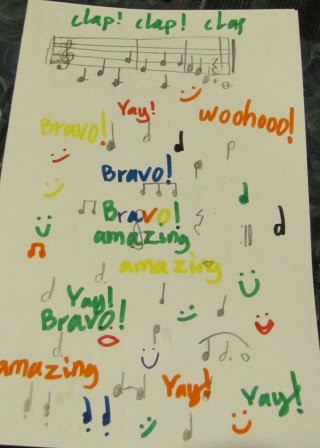 clap! clap! clap
Yay!
woohooo!
Bravo!
Bravo!
Bravo!
amazing
amazing
Yay!
Bravo!
amazing
Yay!
Yay!